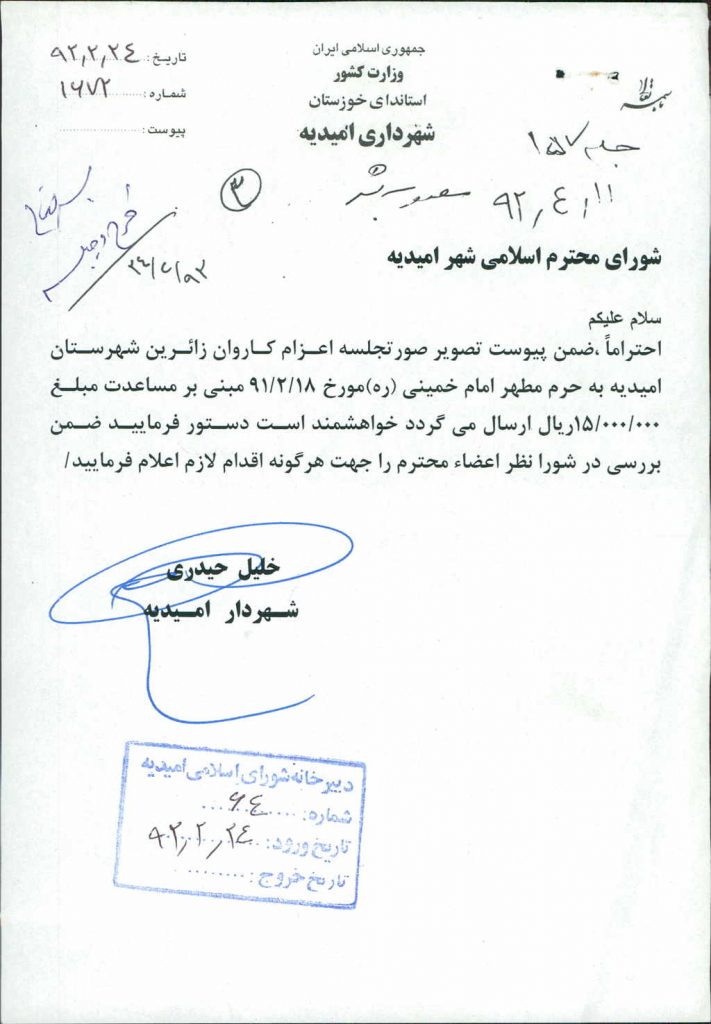 باسمه تعالی
جمهوری اسلامی ایران
وزارت کشور
استانداری خوزستان
شهرداری امیدیه
تاریخ: ۹۲,۲,۲٤
شماره: ۱۶۷۲
پیوست:
جلسه ۱۵۷
۹۲,٤,۱۱ مصوب شد
۳
شورای محترم اسلامی شهر امیدیه
سلام علیکم
احتراماً ،ضمن پیوست تصویر صورتجلسه اعزام کاروان زائرین شهرستان
امیدیه به حرم مطهر امام خمینی (ره)مورخ ۹۱/۲/۱۸ مبنی بر مساعدت مبلغ
۱۵/۰۰۰/۰۰۰ریال ارسال می گردد خواهشمند است دستور فرمایید ضمن
بررسی در شورا نظر اعضاء محترم را جهت هرگونه اقدام لازم اعلام فرمایید/
خلیل حیدری
شهردار امیدیه
دبیرخانه شورای اسلامی امیدیه
شماره: ۶٤
تاریخ ورود: ۹۲,۲,۲٤
تاریخ خروج: